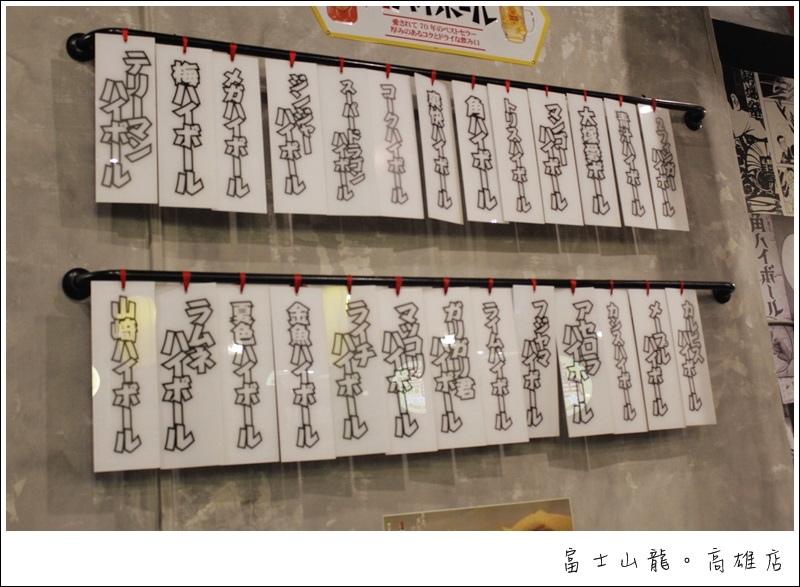 愛されて70年のベストセラー
厚みのあるコクとドライな飲み口
テリーマンハイボール
梅ハイボール
メガハイボール
ジンジャーハイボール
スーパードラゴンハイボール
コークハイボール
角ハイボール
トリスハイボール
マンゴーハイボール
山崎ハイボール
ラムネハイボール
夏色ハイボール
金魚ハイボール
ライチハイボール
マッコリハイボール
ガリガリ君ハイボール
ライムハイボール
フジヤマハイボール
アセロラハイボール
カシスハイボール
メープルハイボール
カルピスハイボール
角ハイボール
富士山龍。高雄店